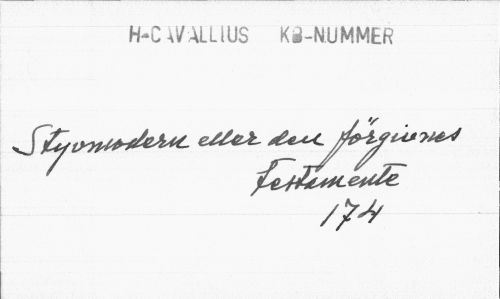 H-CAVALLIUS KB-NUMMER
Styvmodern eller den förgivnes
Testamente
174